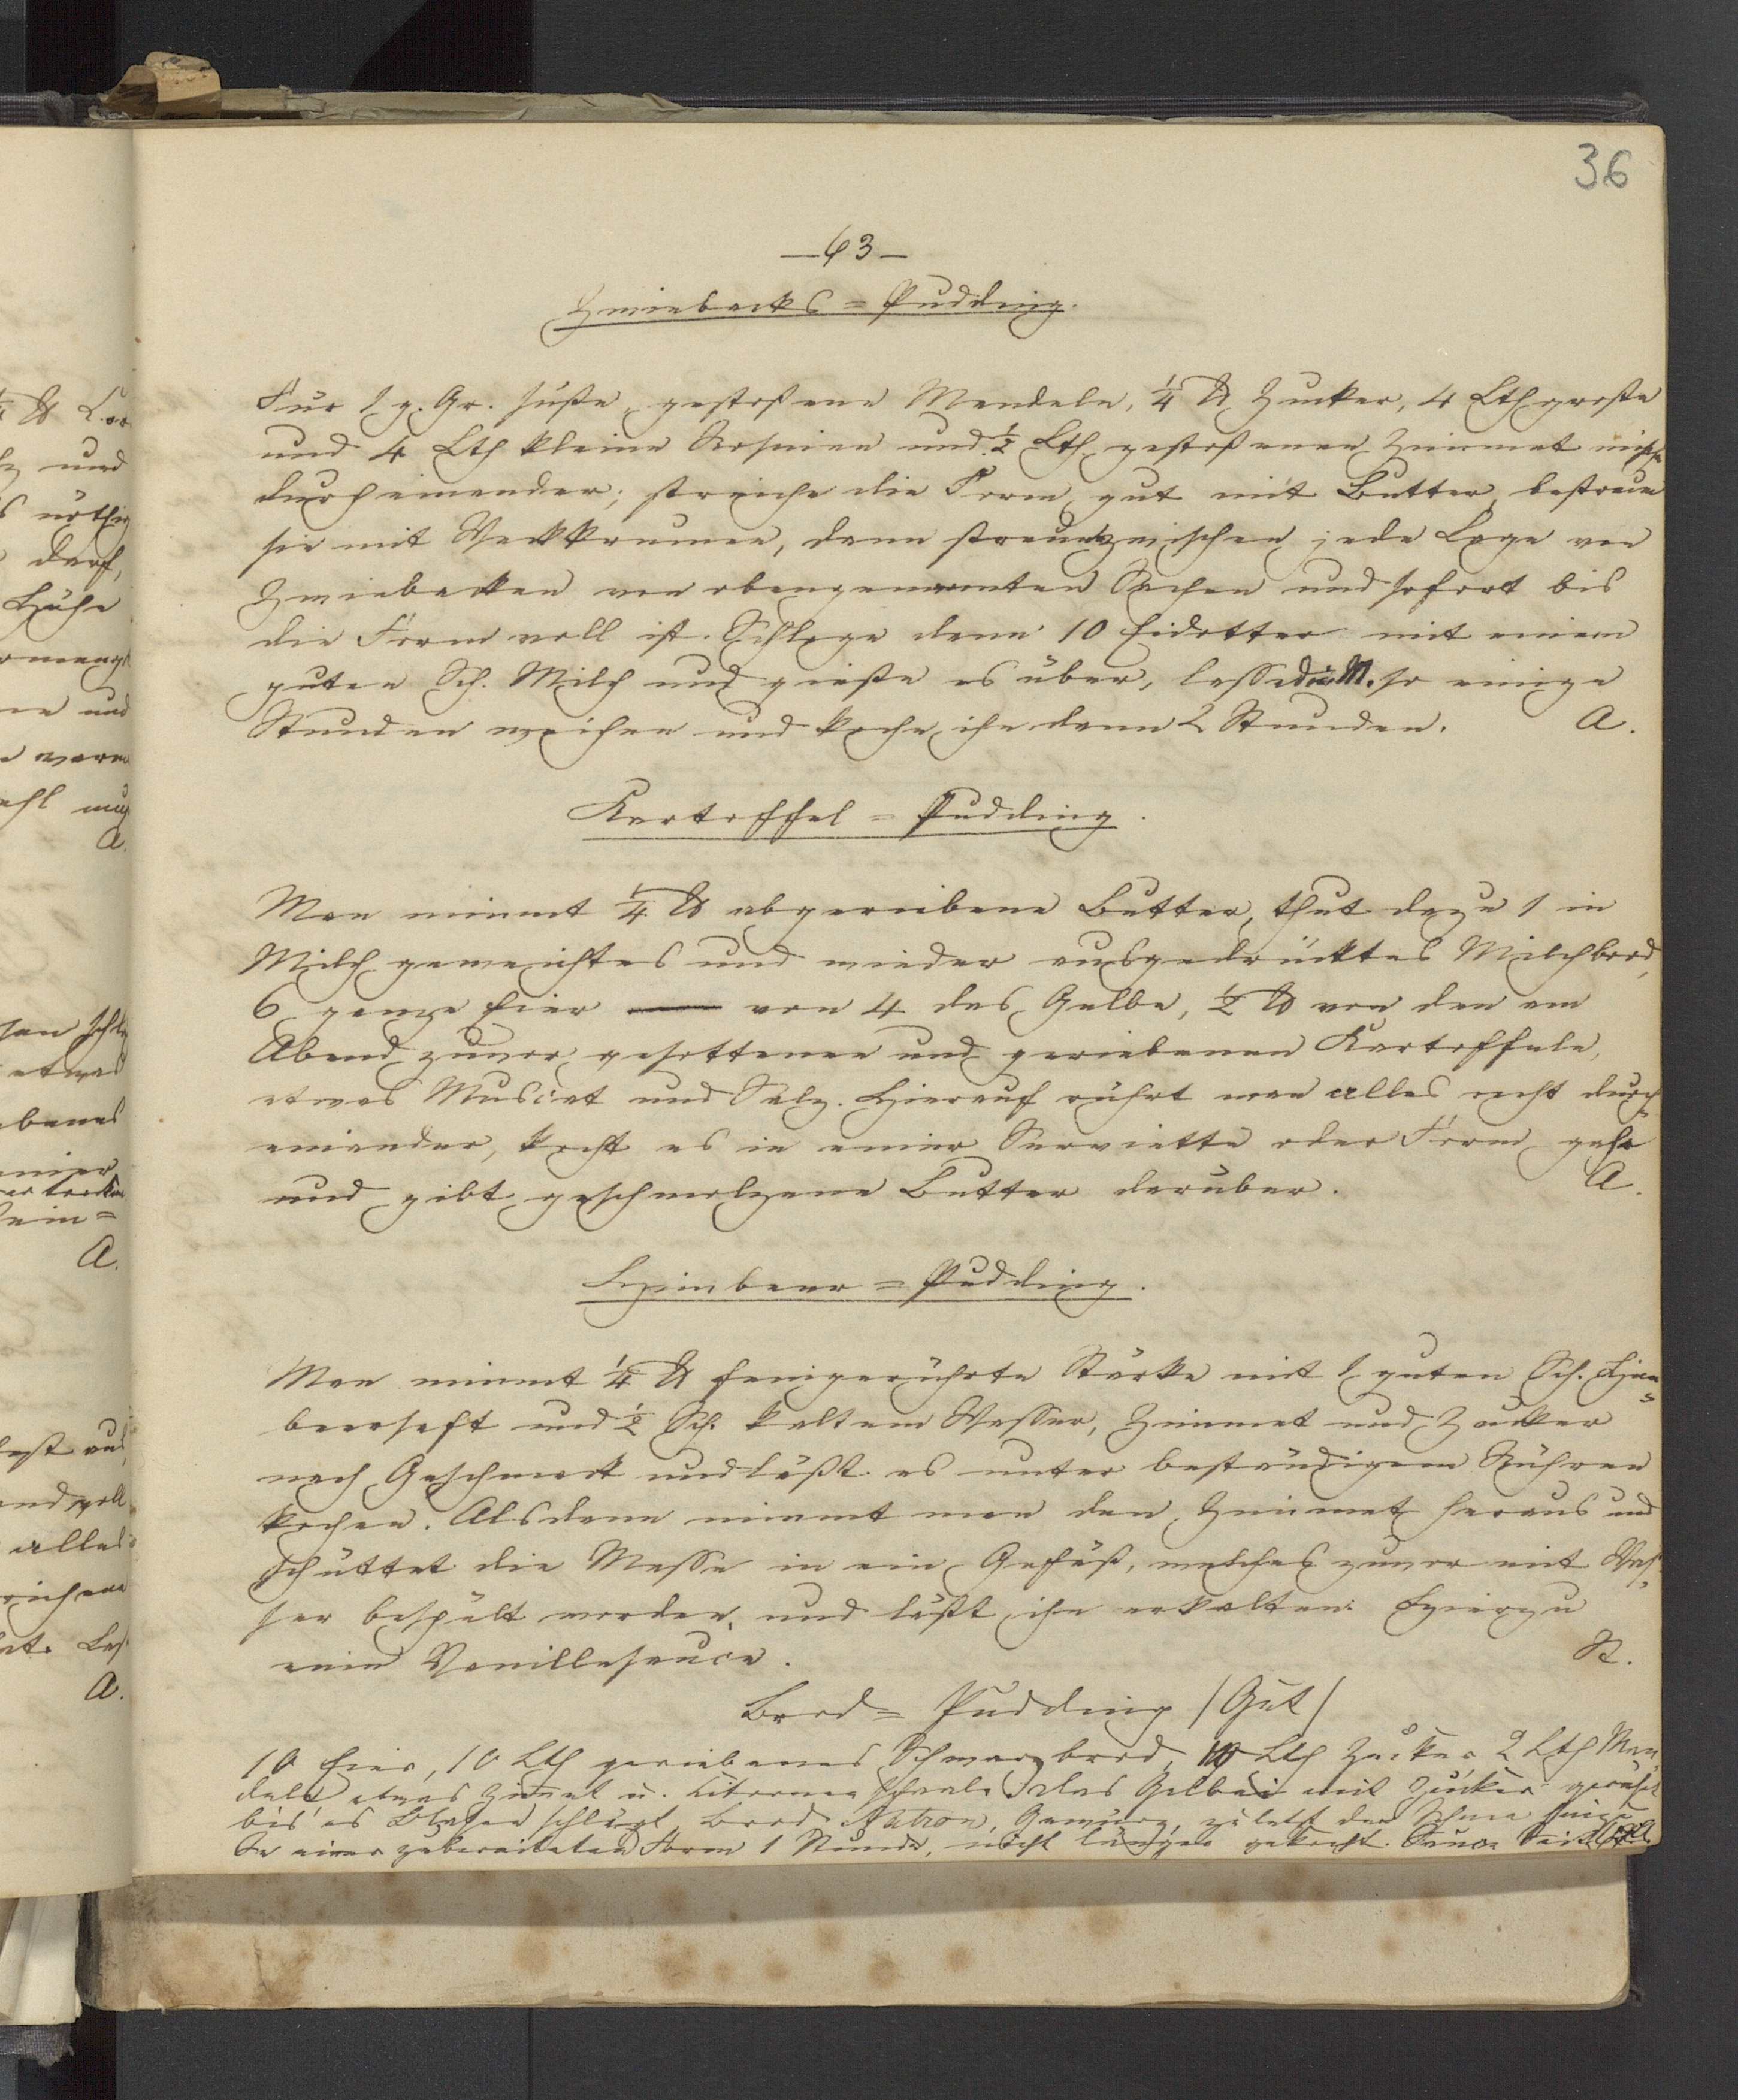 36
— 63 —
Zwiebacks = Pudding.
Für 1 g. Gr. süße, gestoßene Mandeln, ¼ ℔ Zucker, 4 Lth große
und 4 Lth kleine Rosinen und ½ Lth gestoßenen Zimmet mische
durcheinander; streiche die Form gut mit Butter, bestreue
sie mit Weckkrumen, dann streue zwischen jede Lage von
Zwiebacken von obengenannten Sachen und sofort bis
die Form voll ist. Schlage dann 10 Eidotter mit einem
guten Sch. Milch und gieße es über, lasse die M. so einige
Stunden weichen und koche ihn dann 2 Stunden. A.
Kartoffel = Pudding.
Man nimmt ¼ ℔ abgeriebene Butter, thut dazu 1 in
Milch geweichtes und wieder ausgedrücktes Milchbrod,
6 ganze Eier von 4 das Gelbe, ½ ℔ von den am
Abend zuvor gesottenen und geriebenen Kartoffeln,
etwas Muscat und Salz. Hierauf rührt man alles recht durch
einander, kocht es in einer Serviette oder Form gahr
und gibt geschmolzene Butter darüber. A.
Himbeer = Pudding.
Man nimmt ¼ ℔ feingerührte Stärke mit 1 guten Sch. Him=
beersaft und ½ Sch. kaltem Wasser, Zimmet und Zucker
nach Geschmack und läßt es unter beständigem Rühren
kochen. Alsdann nimmt man den Zimmet heraus und
schüttet die Masse in ein Gefäß, welches zuvor mit Was=
ser bespült worden, und läßt ihn erkalten. Hierzu
eine Vanillesauce. St.
Brod = Pudding / Gut /
10 Eier, 10 Lth geriebenes Schwarzbrod, 10 Lth Zucker 2 Lth Man=
deln etwas Zimmt u. Citronenschaale das Gelbe mit Zucker gerührt
bis es Blasen schlägt Brod Natron, Gewürz, zuletzt den Schnee hinzu
In einer zubereiteten Form 1 Stunde, nicht länger gekocht. Sauce